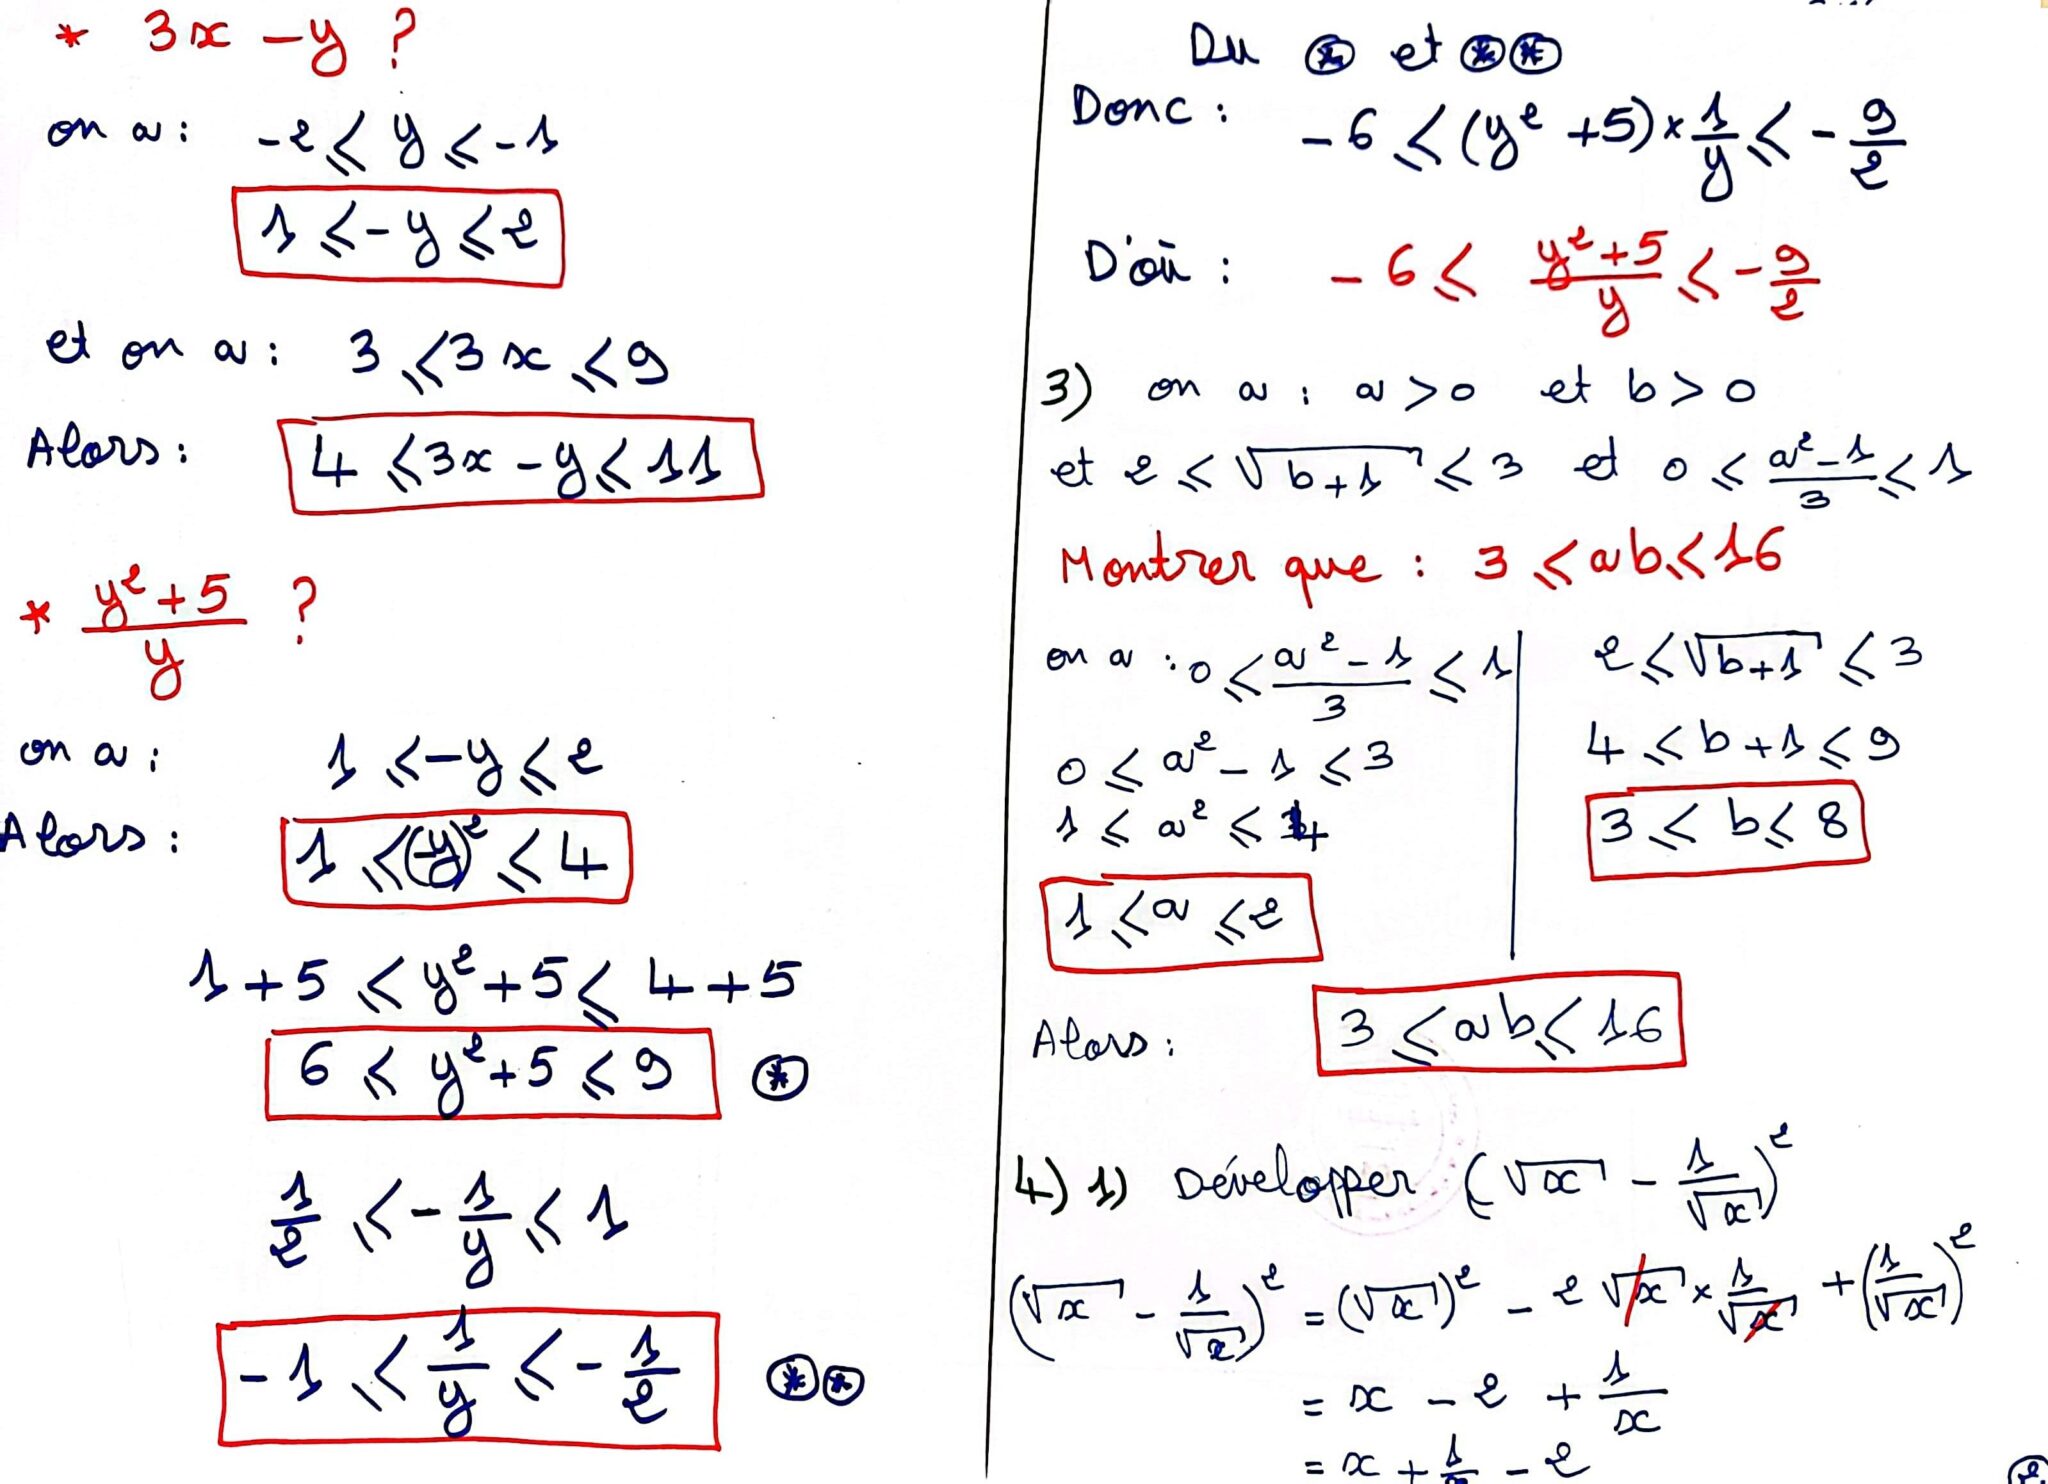 * 3x - y ?
on a : -2 ⩽ y ⩽ -1
1 ⩽ -y ⩽ 2
et on a : 3 ⩽ 3x ⩽ 9
Alors : 4 ⩽ 3x - y ⩽ 11
* (y² + 5)/y ?
on a : 1 ⩽ -y ⩽ 2
Alors : 1 ⩽ (-y)² ⩽ 4
1 + 5 ⩽ y² + 5 ⩽ 4 + 5
6 ⩽ y² + 5 ⩽ 9 ⊛
1/2 ⩽ -1/y ⩽ 1
-1 ⩽ 1/y ⩽ -1/2 ⊛⊛
Du ⊛ et ⊛⊛
Donc : -6 ⩽ (y² + 5) × 1/y ⩽ -9/2
D'où : -6 ⩽ (y² + 5)/y ⩽ -9/2
3) on a : a > 0 et b > 0
et 2 ⩽ √(b+1) ⩽ 3 et 0 ⩽ (a² - 1)/3 ⩽ 1
Montrer que : 3 ⩽ ab ⩽ 16
on a : 0 ⩽ (a² - 1)/3 ⩽ 1
0 ⩽ a² - 1 ⩽ 3
1 ⩽ a² ⩽ 4
1 ⩽ a ⩽ 2
2 ⩽ √(b+1) ⩽ 3
4 ⩽ b + 1 ⩽ 9
3 ⩽ b ⩽ 8
Alors : 3 ⩽ ab ⩽ 16
4) 1) Développer (√x - 1/√x)²
(√x - 1/√x)² = (√x)² - 2 √x × 1/√x + (1/√x)²
= x - 2 + 1/x
= x + 1/x - 2